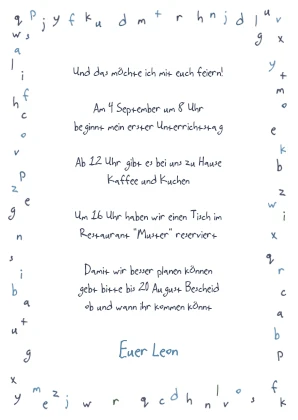 Und das möchte ich mit euch feiern!
Am 4 September um 8 Uhr
beginnt mein erster Unterrichtstag
Ab 12 Uhr gibt es bei uns zu Hause
Kaffee und Kuchen
Um 16 Uhr haben wir einen Tisch im
Restaurant "Muster" reserviert
Damit wir besser planen können
gebt bitte bis 20 August Bescheid
ob und wann ihr kommen könnt
Euer Leon